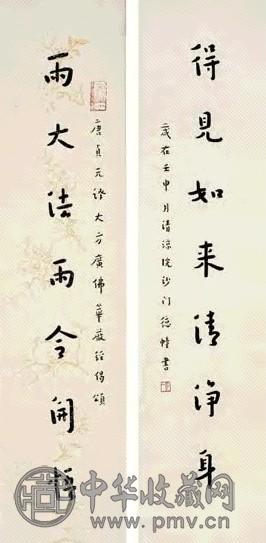 得見如来清淨身
歲在壬申月清涼院沙门德幢書
唐貞元譯大方廣佛華嚴經偈頌
雨大法雨令開
中华收藏网
www.pmv.cn